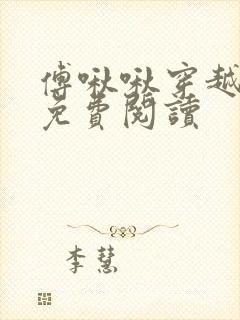 傅啾啾穿越
免費閱讀
李慧